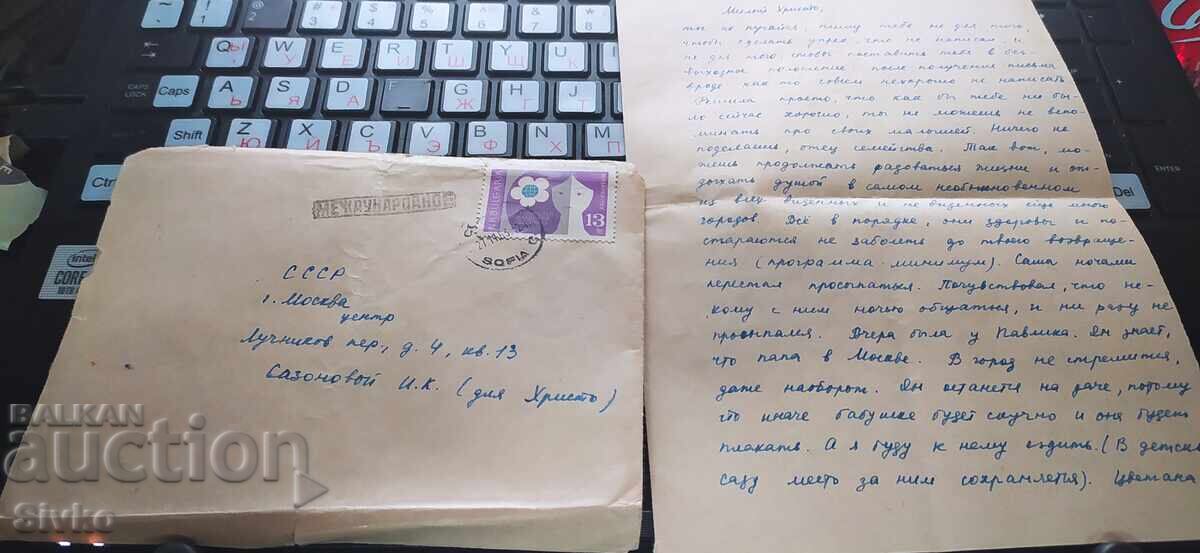 МЕЖДУНАРОДНО
НРБ BULGARIA
13
SOFIA
СССР
г. Москва
центр
Лучников пер., д. 4, кв. 13
Сазоновой И.К. (для Христо)
Милый Христо,
ты не пугайся, пишу тебе не для того,
чтобы сделать упрек, что не написал и
не для того, чтобы поставить тебя в без-
выходное положение, после получения письма
вроде как-то совсем нехорошо не написать.
Решила просто, что как бы тебе ни бы-
ло сейчас хорошо, ты не можешь не вспо-
минать про своих малышей. Ничего не
поделаешь, отец семейства. Так вот, мо-
жешь продолжать радоваться жизни и от-
дыхать душой в самом необыкновенном
из всех виденных и не виденных еще мною
городов. Всё в порядке, они здоровы и по-
стараются не заболеть до твоего возвраще-
ния (программа-минимум). Саша ночами
перестал просыпаться. Почувствовал, что не-
кому с ним ночью общаться, и ни разу не
просыпался. Вчера была у Павлика. Он знает,
что папа в Москве. В город не стремится,
даже наоборот. Он останется на даче, потому
что иначе бабушке будет скучно и она будет
плакать. А я буду к нему ездить. (В детск
саду место за ним сохраняется). Цветана
BALKAN
auction
Sivko
Caps
CAPS LOCK
Shift
Ctrl
Del
ENTER
intel
CORE
Q W E R T Y
A S D F G H J
Z X C V B N M